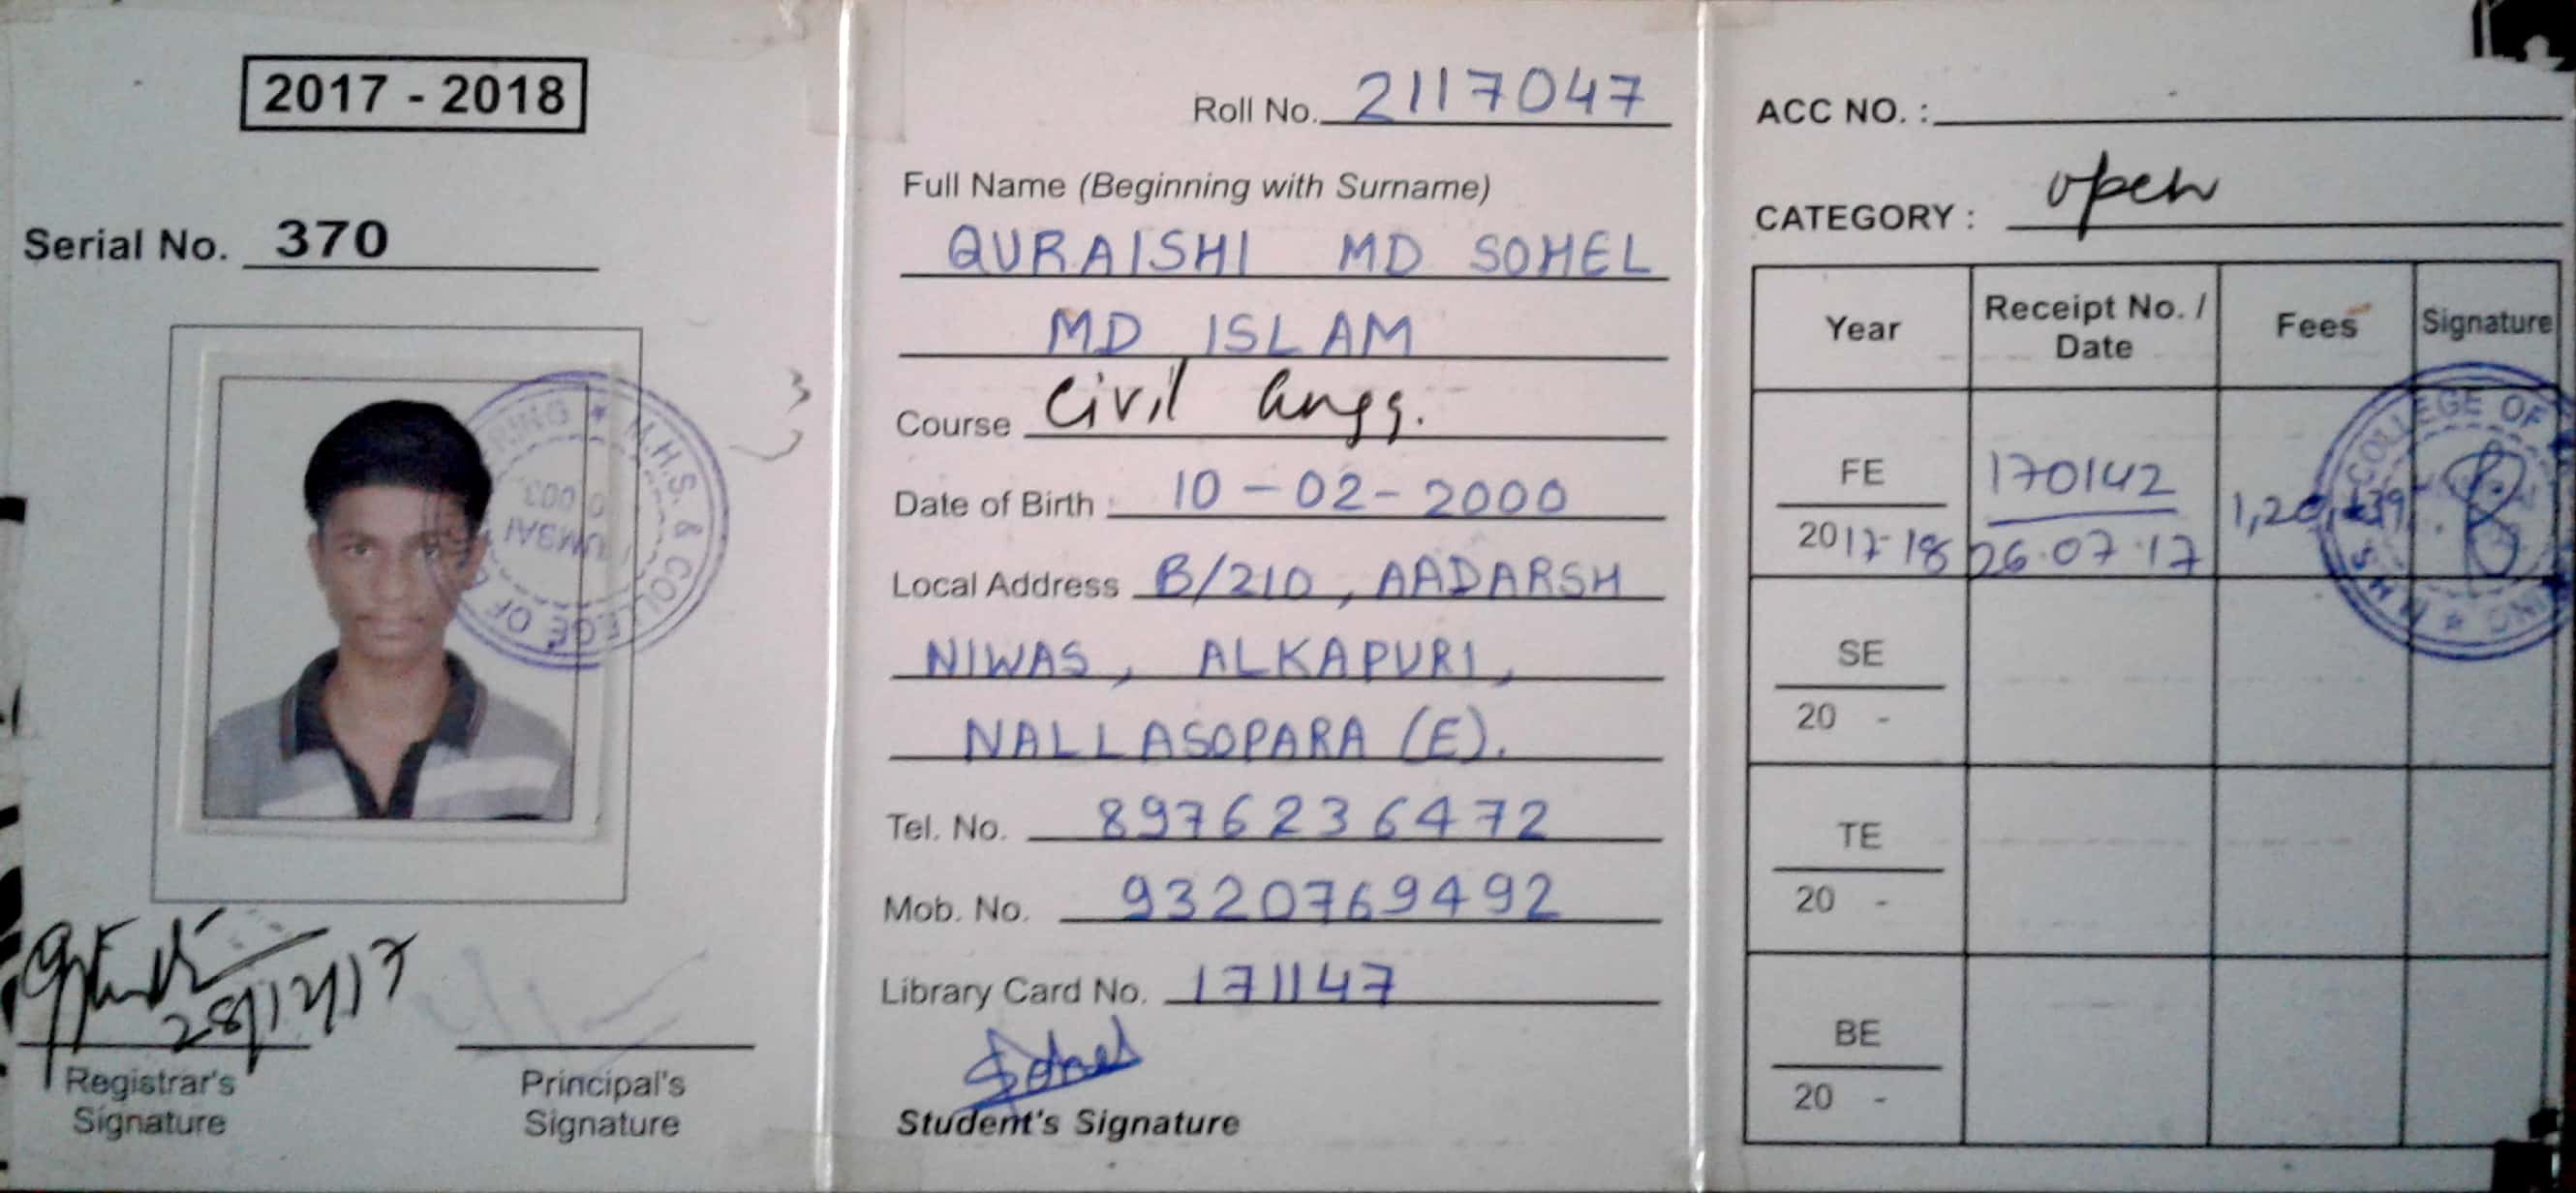 2017 - 2018
Serial No. 370
M.H.S. & COLLEGE OF
28/12/17
Registrar's
Signature
Principal's
Signature
Roll No. 2117047
Full Name (Beginning with Surname)
QURAISHI MD SOHEL
MD ISLAM
Course Civil Engg.
Date of Birth : 10 - 02 - 2000
Local Address B/210, AADARSH
NIWAS, ALKAPURI,
NALLASOPARA (E).
Tel. No. 8976236472
Mob. No. 9320769492
Library Card No. 171147
Sohel
Student's Signature
ACC NO. :
CATEGORY : open
Year Receipt No. / Date Fees Signature
FE 170142
2017-18 26.07.17
COLLEGE OF
SE
20 -
TE
20 -
BE
20 -